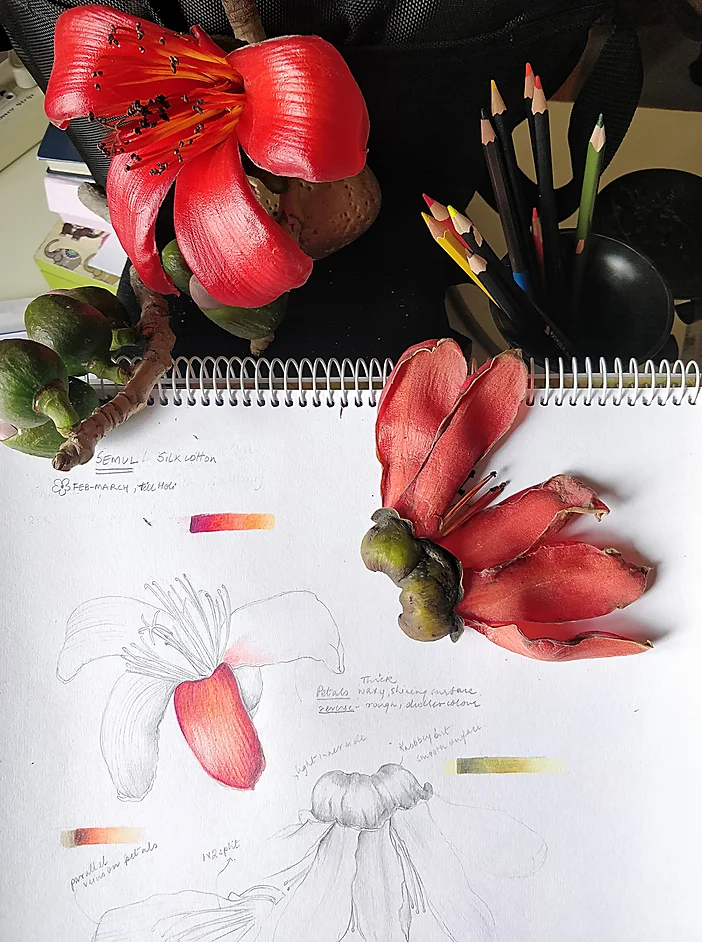 SEMUL! Silk cotton
FEB-MARCH, till Holi
Thick
Petals waxy, shining surface
reverse - rough, duller colour
light inner side
Knobbly but
smooth surface
1x2 split
parallel
veins on petals